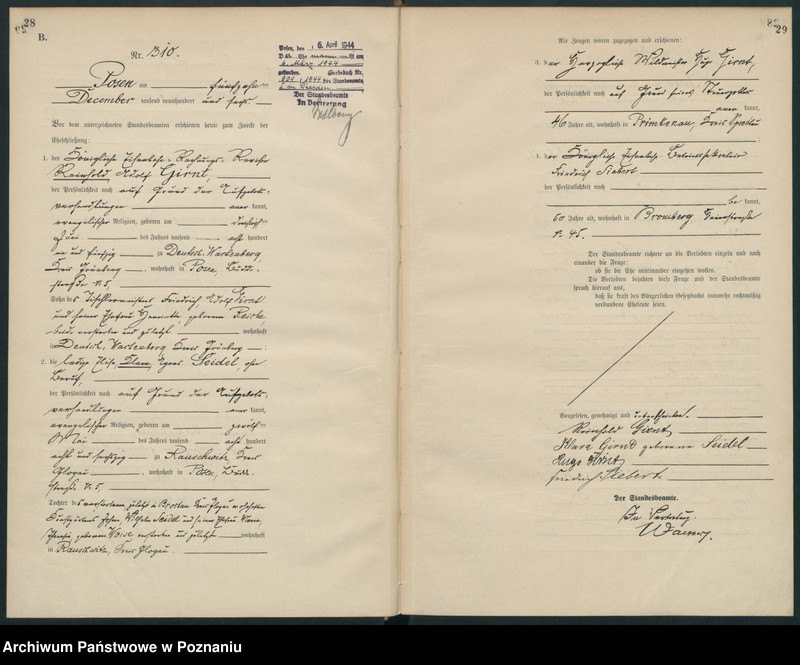 28
B.
Nr. 310.
Posen, den 6. April 1944
6. März 1944
gestorben. Sterbebuch Nr.
1944 des Standesamts
Dresden
Der Standesbeamte
In Vertretung
Posen am fünfzehn
December tausend neunhundert und sechs
Vor dem unterzeichneten Standesbeamten erschienen heute zum Zwecke der
Eheschließung:
1. der Königliche Eisenbahn-Rechnungs-Revisor
Reinhold Adolf Girnt
der Persönlichkeit nach auf Grund der Aufgebots-
verhandlungen aner kannt,
evangelischer Religion, geboren am
Juni des Jahres tausend acht hundert
ein und fünfzig zu Deutsch-Wartenberg,
Kreis Grünberg, wohnhaft in Posen,
straße Nr. 5,
Sohn des Tischlermeisters Friedrich Adolf Girnt
und seiner Ehefrau Henriette, geborenen
beide verstorben und zuletzt wohnhaft
in Deutsch-Wartenberg Kreis Grünberg
2. die ledige Elise, Klara, Agnes Seidel, ohne
Beruf,
der Persönlichkeit nach auf Grund der Aufgebots-
verhandlungen aner kannt,
evangelischer Religion, geboren am zwölften
Mai des Jahres tausend acht hundert
acht und sechszig zu Rauschwitz, Kreis
Glogau, wohnhaft in Posen,
straße Nr. 5
Tochter des verstorbenen, zuletzt in Kreis Glogau wohnhaften
Wilhelm Seidel und seiner Ehefrau
geborenen verstorben und zuletzt wohnhaft
in Rauschwitz, Kreis Glogau.
29
Als Zeugen waren zugezogen und erschienen:
3. der Herzogliche Hugo Girnt,
der Persönlichkeit nach auf Grund seines
aner kannt,
46 Jahre alt, wohnhaft in Primkenau, Kreis Sprottau
4. der Königliche Eisenbahn-
Friedrich Siebert
der Persönlichkeit nach
be kannt,
60 Jahre alt, wohnhaft in Bromberg
Nr. 45.
Der Standesbeamte richtete an die Verlobten einzeln und nach
einander die Frage:
ob sie die Ehe miteinander eingehen wollen.
Die Verlobten bejahten diese Frage und der Standesbeamte
sprach hierauf aus,
daß sie kraft des Bürgerlichen Gesetzbuchs nunmehr rechtmäßig
verbundene Eheleute seien.
Vorgelesen, genehmigt und unterschrieben.
Reinhold Girnt
Klara Girnt geborene Seidel
Hugo Girnt
Friedrich Siebert
Der Standesbeamte.
In Vertretung.
Archiwum Państwowe w Poznaniu